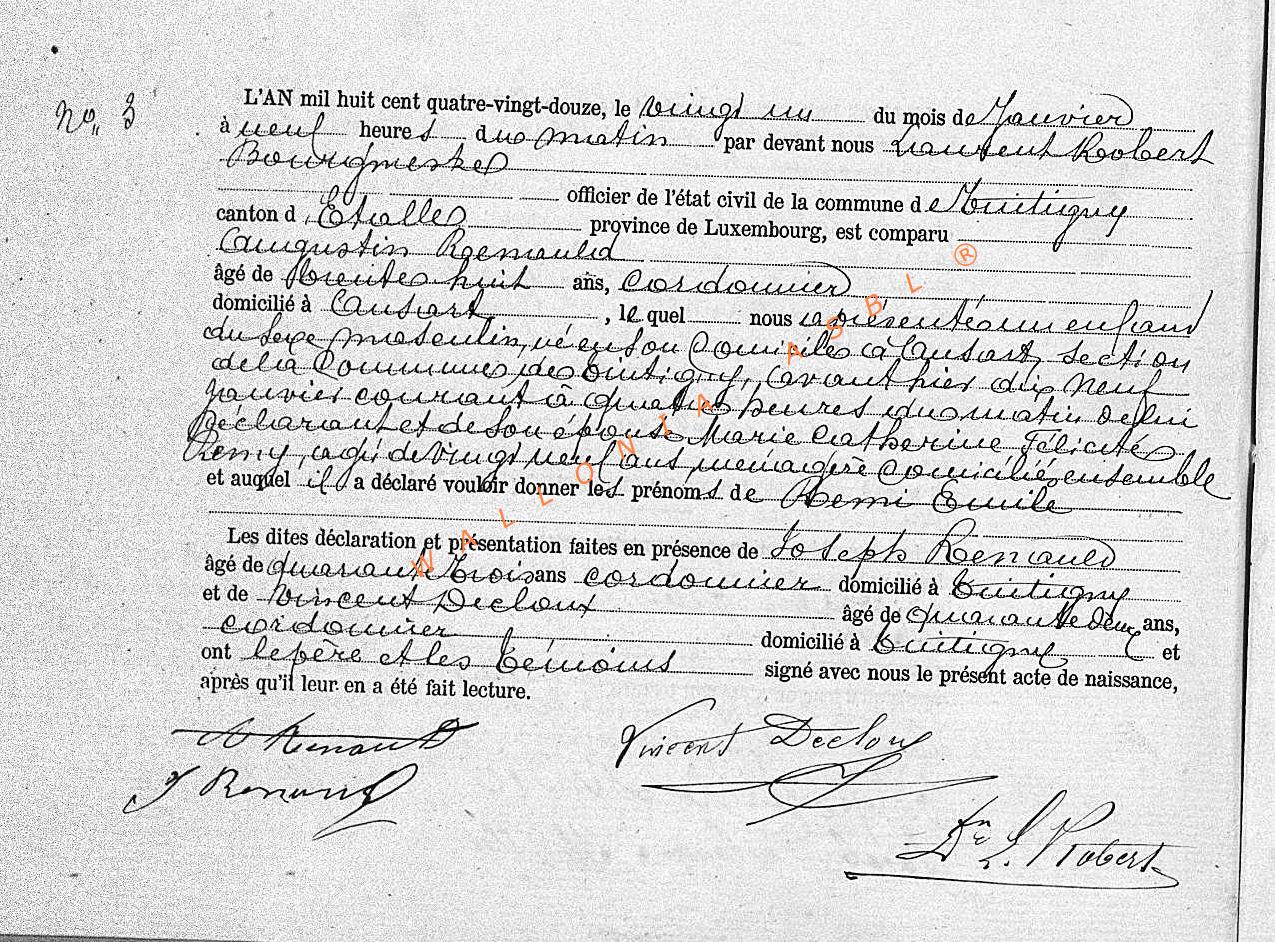 No. 3
L'AN mil huit cent quatre-vingt-douze, le vingt un du mois de Janvier
à neuf heures du matin par devant nous Laurent Robert
Bourgmestre
officier de l'état civil de la commune de Tintigny
canton d'Etalle province de Luxembourg, est comparu
Augustin Renauld
âgé de trente huit ans, cordonnier
domicilié à Ansart, lequel nous a présenté un enfant
du sexe masculin, né en son domicile à Ansart, section
de la Commune de Tintigny, avant hier dix neuf
janvier courant à quatre heures du matin de lui
déclarant et de son épouse Marie Catherine Félicité
Remy, agé de vingt neuf ans, ménagère domiciliés ensemble
et auquel il a déclaré vouloir donner les prénoms de Remi Emile
Les dites déclaration et présentation faites en présence de Joseph Renauld
âgé de quarante trois ans cordonnier domicilié à Tintigny
et de Vincent Decloux âgé de quarante deux ans,
cordonnier domicilié à Tintigny et
ont le père et les témoins signé avec nous le présent acte de naissance,
après qu'il leur en a été fait lecture.
A Renauld
Vincent Decloux
J Renauld
L. Robert
WALLONIA ASBL ®